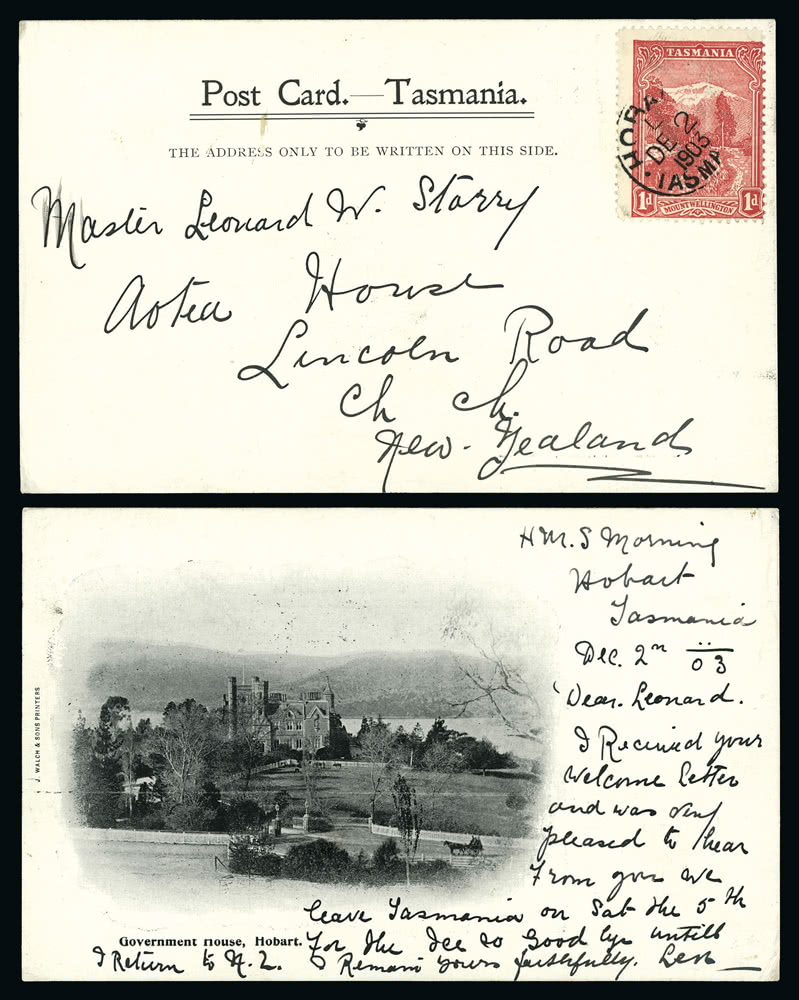 Post Card.—Tasmania.
THE ADDRESS ONLY TO BE WRITTEN ON THIS SIDE.
TASMANIA
HOBA
DE 2
1903
TASMA
1d MOUNT WELLINGTON 1d
Master Leonard W. Starry
Aotea House
Lincoln Road
Ch ch.
New-Zealand
H M.S Morning
Hobart
Tasmania
Dec. 2nd 03
Dear. Leonard.
I Recieved your
welcome letter
and was very
pleased to hear
From you we
leave Tasmania on Sat the 5th
For the Ice so Good bye untill
I Return to N.Z. I Remain yours faithfully.
J. WALCH & SONS PRINTERS
Government House, Hobart.